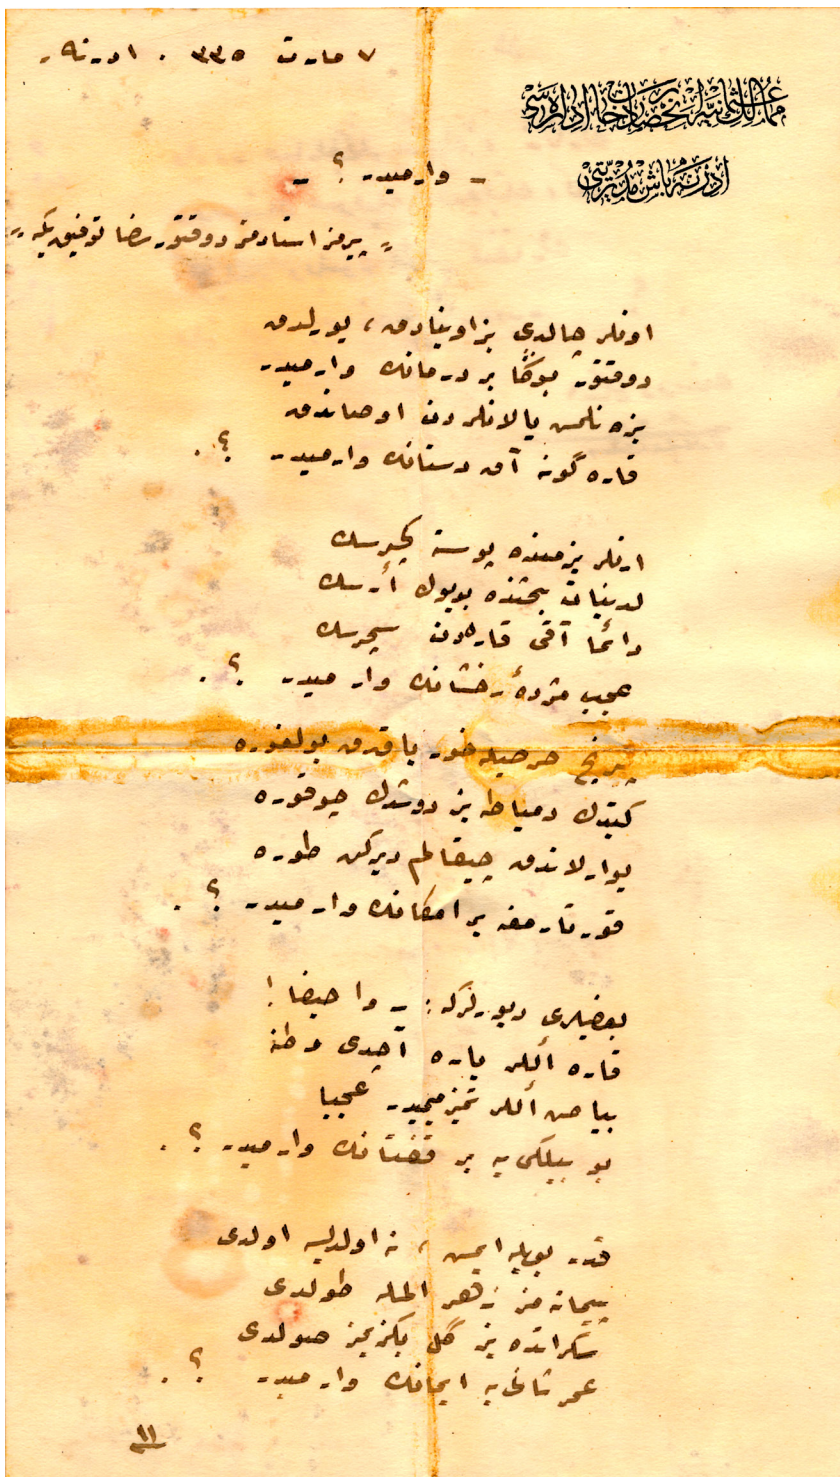 ٧ مارت ٣٣٥ . ادرنه .
ممالك عثمانيه انحصار دخان اداره سی
ادرنه باش مديريتی
ـ وارميدر ؟ ـ
« پيرمز استادمز دوقتور رضا توفيق بكه »
اونلر چالدی بز اوينادق ، يورلدق
دوقتور بوڭا بر درمانك وارميدر
يالانلردن اوصاندق
قاره گونه آق دستانك وارميدر ؟ .
ارنلر بزمنده پوسته كچرسك
بحثنده بويوك أرسك
دائما آقی قاره دن سچرسك
عجب مژدهٔ رخشانك وارميدر ؟ .
پرنج حرصيله خور باقدق بولغوره
كيتدك دمياطه بز دوشدك چوقوره
يوارلاندق چيقالم ديركن طوره
قورتارمغه بر امكانك وارميدر ؟ .
بعضيلری ديورلركه : ـ وا حيفا !
قاره أللر ياره آچدی وطنه
بياض أللر تميزميدر عجبا
بو بيلكی يه بر وارميدر ؟ .
قدر بويله ايمش ، نه اولديسه اولدی
پيمانه مز زهر المله طولدی
سكراتده يز گل بكزيمز صولدی
عمر ثانی يه ايمانك وارميدر ؟ .